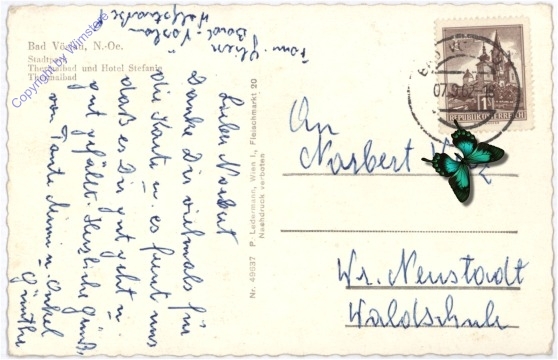 Bad Vöslau, N.-Oe.
Stadtpark
Thermalbad und Hotel Stefanie
Thermalbad
Copyright by Wimstore
Fam.
Bad-Vöslau
Lieber Norbert
Danke Dir vielmals für
die Karte u. es freut uns
daß es Dir gut geht u.
gut gefällt. Herzliche Grüße
von Tante Mimi u. Onkel
Günther
Nr. 49637 P. Ledermann, Wien I., Fleischmarkt 20
Nachdruck verboten
REPUBLIK ÖSTERREICH
An
Norbert
Wr. Neustadt
Waldschule